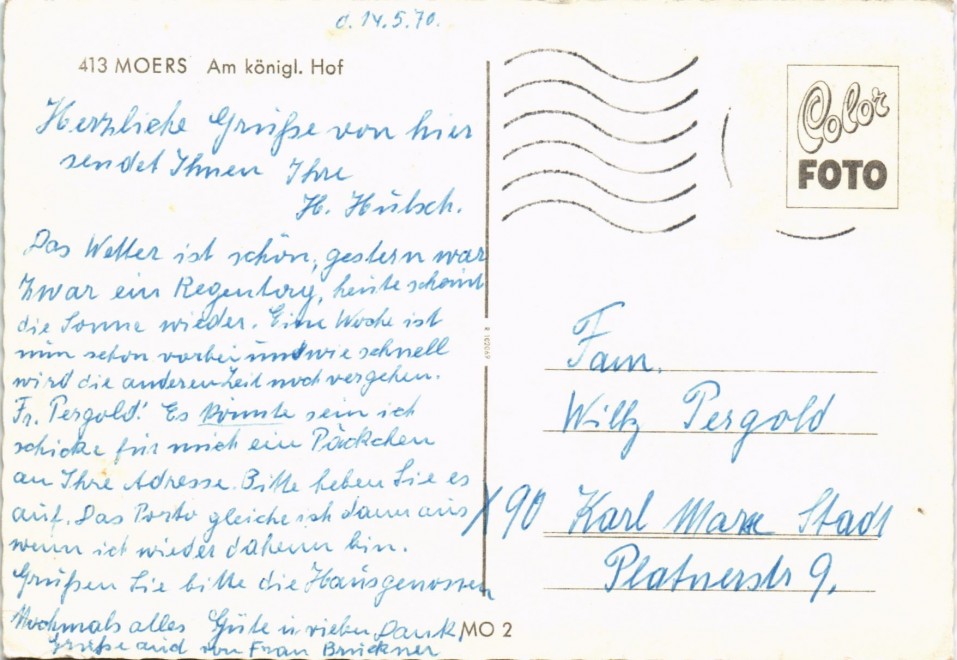 d. 14.5.70.
413 MOERS Am königl. Hof
Herzliche Grüße von hier
sendet Ihnen Ihre
H. Hübsch.
Das Wetter ist schön, gestern war
zwar ein Regentag, heute scheint
die Sonne wieder. Eine Woche ist
nun schon vorbei und wie schnell
wird die anderen Zeit noch vergehen.
Fr. Pergold! Es könnte sein ich
schicke für mich ein Päckchen
an Ihre Adresse. Bitte heben Sie es
auf. Das Porto gleiche ich dann aus
wenn ich wieder daheim bin.
Grüßen Sie bitte die Hausgenossen
Nochmals alles Gute u. vielen Dank
Grüße auch von Frau Brückner
MO 2
Color
FOTO
Fam.
Willy Pergold
X 90 Karl Marx Stadt
Platnerstr 9.